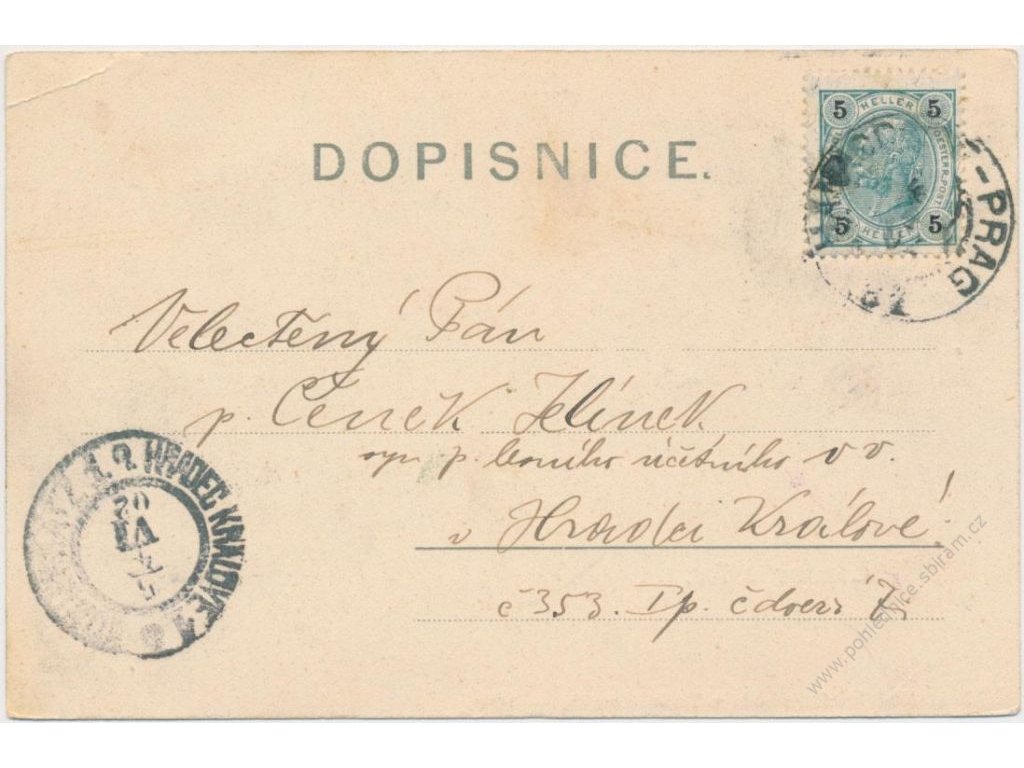 DOPISNICE.
5 HELLER 5
OESTERR. POST
5 HELLER 5
-PRAG
Velectěný Pán
p. Čeněk Jelínek
syn p. účetního v v.
v Hradci Králové!
č 353. Ip. č dveří 7
HRADEC KRÁLOVÉ 1
02
VI
www.pohlednice.sbiram.cz